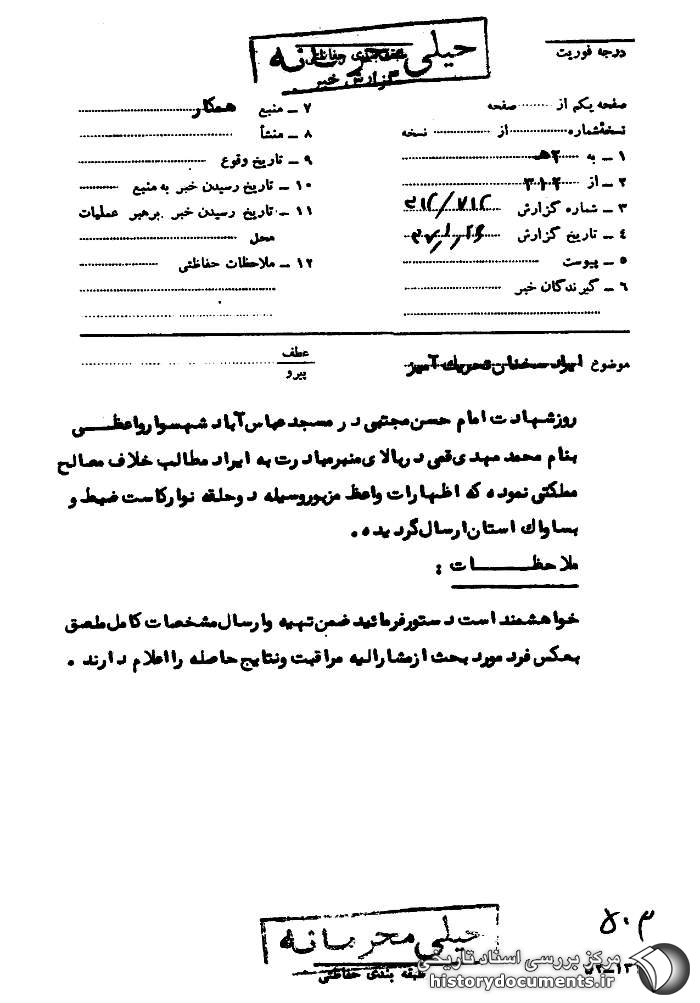 خیلی محرمانه
گزارش خبر
درجه فوریت
صفحه یکم از ........ صفحه
نسخه شماره ........ از ........ نسخه
۱ – به ۲هـ
۲ – از ۳۱۲
۳ – شماره گزارش
۴ – تاریخ گزارش
۵ – پیوست
۶ – گیرندگان خبر
۷ – منبع همکار
۸ – منشأ
۹ – تاریخ وقوع
۱۰ – تاریخ رسیدن خبر به منبع
۱۱ – تاریخ رسیدن خبر برهبر عملیات
محل
۱۲ – ملاحظات حفاظتی
موضوع ایراد سخنان تحریک آمیز
عطف
پیرو
روز شهادت امام حسن مجتبی در مسجد عباس آباد شهسوار واعظی
بنام محمد مهدی قمی در بالای منبر مبادرت به ایراد مطالب خلاف مصالح
مملکتی نموده که اظهارات واعظ مزبور وسیله دو حلقه نوار کاست ضبط و
بساواک استان ارسال گردیده .
ملاحظات :
خواهشمند است دستور فرمائید ضمن تهیه و ارسال مشخصات کامل ملصق
بعکس فرد مورد بحث از مشارالیه مراقبت و نتایج حاصله را اعلام دارند .
خیلی محرمانه
طبقه بندی حفاظتی
مرکز بررسی اسناد تاریخی
historydocuments.ir